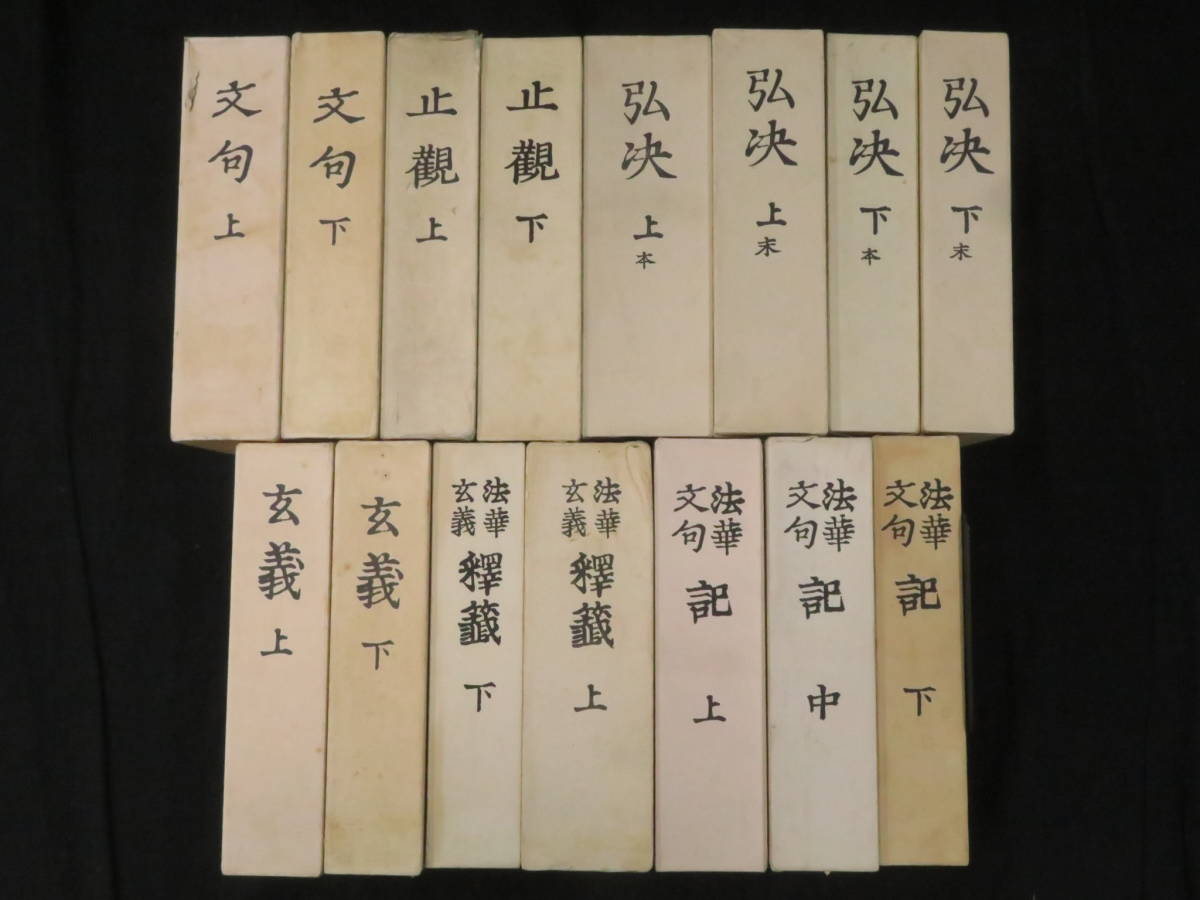 文句 上
文句 下
止觀 上
止觀 下
弘决 上本
弘决 上末
弘决 下本
弘决 下末
玄義 上
玄義 下
法華玄義 釋籤 下
法華玄義 釋籤 上
法華文句 記 上
法華文句 記 中
法華文句 記 下